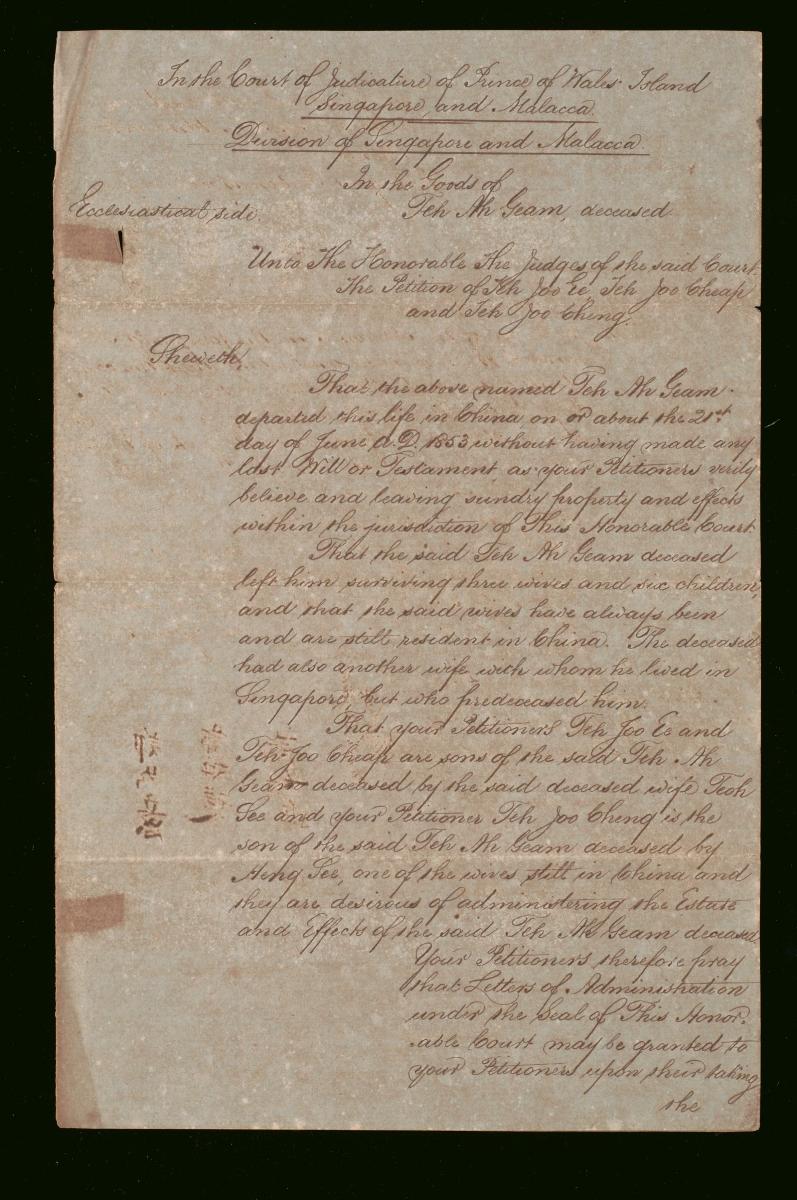 In the Court of Judicature of Prince of Wales Island
Singapore and Malacca.
Division of Singapore and Malacca.
In the Goods of
Ecclesiastical side.
Teh Ah Geam, deceased
Unto The Honorable The Judges of the said Court.
The Petition of Teh Joo Ee, Teh Joo Cheap
and Teh Joo Ching.
Sheweth,
That the above named Teh Ah Geam
departed this life in China on or about the 21st
day of June A.D. 1853 without having made any
last Will or Testament as your Petitioners verily
believe and leaving sundry property and effects
within the jurisdiction of This Honorable Court.
That the said Teh Ah Geam deceased
left him surviving three wives and six children,
and that the said wives have always been
and are still resident in China. The deceased
had also another wife with whom he lived in
Singapore, but who predeceased him.
That your Petitioners Teh Joo Ee and
Teh Joo Cheap are sons of the said Teh Ah
Geam deceased by the said deceased wife Teoh
See and your Petitioner Teh Joo Cheng is the
son of the said Teh Ah Geam deceased by
Heng See, one of the wives still in China and
they are desirous of administering the Estate
and Effects of the said Teh Ah Geam deceased
Your Petitioners therefore pray
that Letters of Administration
under the Seal of This Honor-
-able Court may be granted to
your Petitioners upon their taking
the